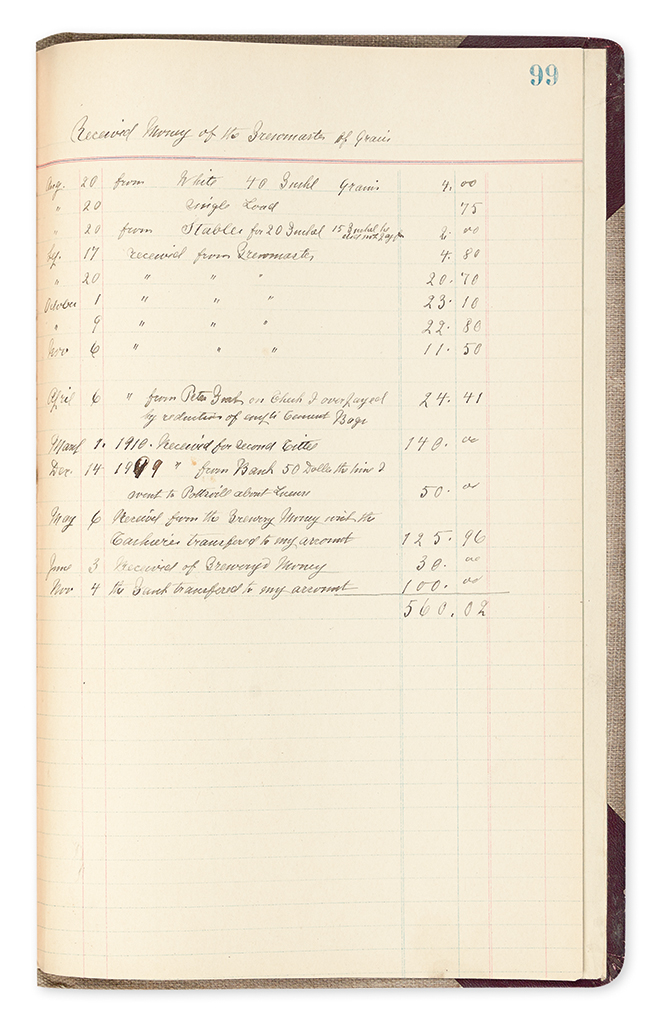 99
Received Money of the Brewmaster of Grain
Aug. 20 from White 40 Bushl Grains 4. 00
" 20 Single Load 75
" 20 from Stables for 20 Bushel 15 Bushel he does not Pay for 2. 00
Sep. 17 received from Brewmaster 4. 80
" 20 " " " 20. 70
October 1 " " " 23. 10
" 9 " " " 22. 80
Nov 6 " " " 11. 50
April 6 " from Peter on Check I overpayed 24. 41
by reduction of empti Cement Bags
March 1. 1910. Received for second 140. 00
Dec. 14 1909 " from Bank 50 Dolls the time I
went to Pottsvill about 50. 00
May 6 Received from the Brewery Money with the
Cashieries transfered to my account 125. 96
June 3 Received of Brewery Money 30. 00
Nov 4 the Bank transfered to my account 100. 00
560. 02